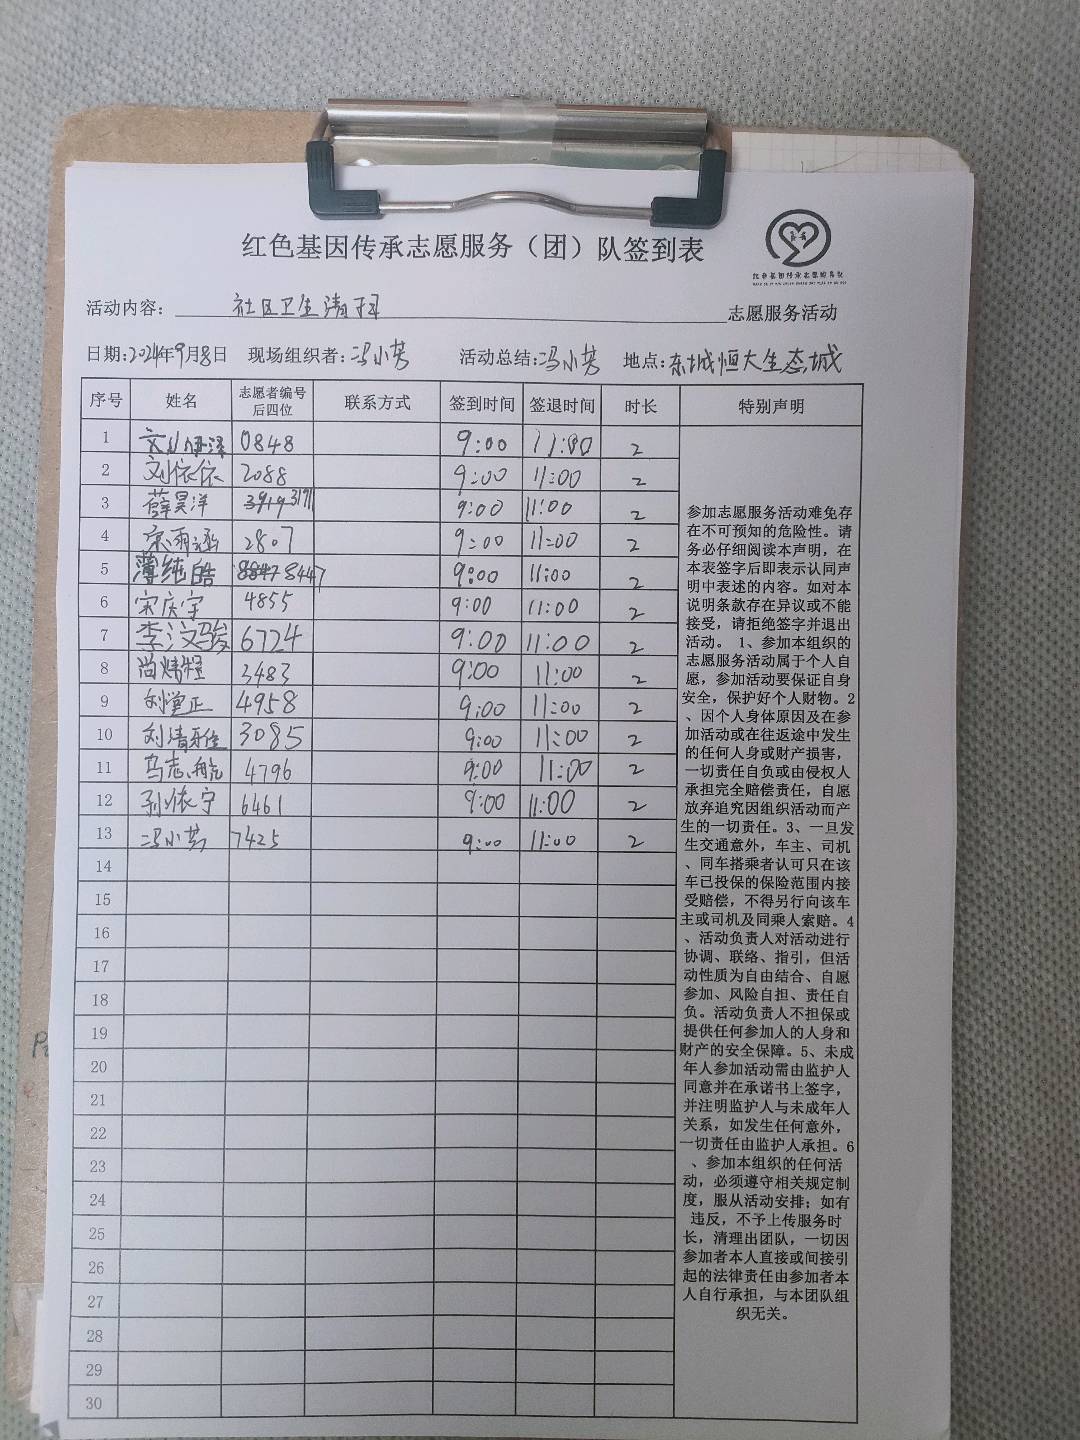 红色基因传承志愿服务（团）队签到表
红色基因传承志愿服务队
活动内容：社区卫生清扫 志愿服务活动
日期：2024年9月8日 现场组织者：冯小芳 活动总结：冯小芳 地点：东城恒大生态城
序号 姓名 志愿者编号后四位 联系方式 签到时间 签退时间 时长 特别声明
1 0848 9:00 11:00 2
2 刘依依 2088 9:00 11:00 2
3 薛昊洋 3191 9:00 11:00 2
4 宗雨涵 2807 9:00 11:00 2
5 薄纯皓 8447 9:00 11:00 2
6 宋庆宇 4855 9:00 11:00 2
7 李汶骏 6724 9:00 11:00 2
8 尚炳程 3483 9:00 11:00 2
9 刘堂正 4958 9:00 11:00 2
10 刘清雅 3085 9:00 11:00 2
11 马志航 4796 9:00 11:00 2
12 孙依宁 6461 9:00 11:00 2
13 冯小芳 7425 9:00 11:00 2
14
15
16
17
18
19
20
21
22
23
24
25
26
27
28
29
30
参加志愿服务活动难免存
在不可预知的危险性。请
务必仔细阅读本声明，在
本表签字后即表示认同声
明中表述的内容。如对本
说明条款存在异议或不能
接受，请拒绝签字并退出
活动。 1、参加本组织的
志愿服务活动属于个人自
愿，参加活动要保证自身
安全，保护好个人财物。2
、因个人身体原因及在参
加活动或在往返途中发生
的任何人身或财产损害，
一切责任自负或由侵权人
承担完全赔偿责任，自愿
放弃追究因组织活动而产
生的一切责任。3、一旦发
生交通意外，车主、司机
、同车搭乘者认可只在该
车已投保的保险范围内接
受赔偿，不得另行向该车
主或司机及同乘人索赔。4
、活动负责人对活动进行
协调、联络、指引，但活
动性质为自由结合、自愿
参加、风险自担、责任自
负。活动负责人不担保或
提供任何参加人的人身和
财产的安全保障。5、未成
年人参加活动需由监护人
同意并在承诺书上签字，
并注明监护人与未成年人
关系，如发生任何意外，
一切责任由监护人承担。6
、参加本组织的任何活
动，必须遵守相关规定制
度，服从活动安排；如有
违反，不予上传服务时
长，清理出团队，一切因
参加者本人直接或间接引
起的法律责任由参加者本
人自行承担，与本团队组
织无关。